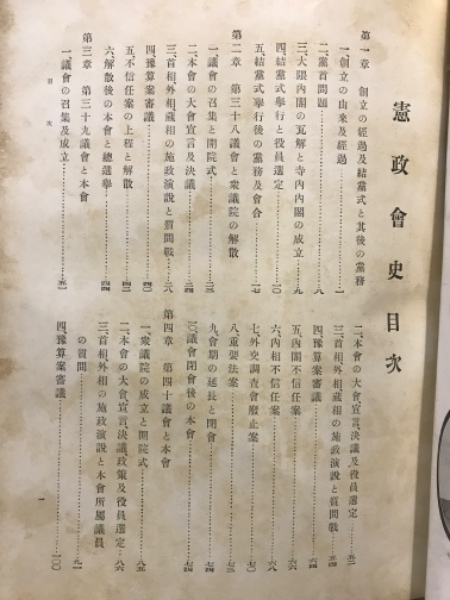 憲政會史目次
第一章 創立の經過及結黨式と其後の黨務
一、創立の由來及經過…………一
二、黨首問題…………八
三、大隈內閣の瓦解と寺內內閣の成立…………九
四、結黨式擧行と役員選定…………一〇
五、結黨式擧行後の黨務及會合…………一七
第二章 第三十八議會と衆議院の解散
一、議會の召集と開院式…………二三
二、本會の大會宣言及決議…………二四
三、首相、外相、藏相の施政演說と質問戰…………二八
四、豫算案審議…………四〇
五、不信任案の上程と解散…………四二
六、解散後の本會と總選擧…………四四
第三章 第三十九議會と本會
一、議會の召集及成立…………五一
二、本會の大會、宣言、決議及役員選定…………五二
三、首相外相藏相の施政演說と質問戰…………五四
四、豫算案審議…………六四
五、內閣不信任案…………六六
六、內相不信任案…………六八
七、外交調査會廢止案…………七〇
八、重要法案…………七三
九、會期の延長と閉會…………七四
一〇、議會閉會後の本會…………七四
第四章 第四十議會と本會
一、衆議院の成立と開院式…………八五
二、本會の大會、宣言、決議、政策及役員選定…………八六
三、首相、外相の施政演說と本會所屬議員
の質問…………九一
四、豫算案審議…………一〇〇
目次
一